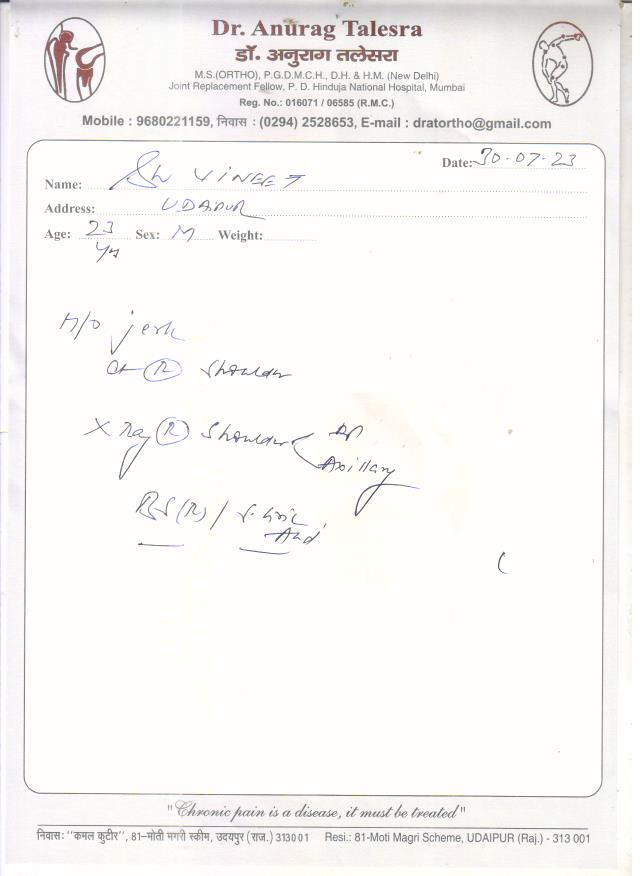 Dr. Anurag Talesra
डॉ. अनुराग तलेसरा
M.S.(ORTHO), P.G.D.M.C.H., D.H. & H.M. (New Delhi)
Joint Replacement Fellow, P. D. Hinduja National Hospital, Mumbai
Reg. No.: 016071 / 06585 (R.M.C.)
Mobile : 9680221159, निवास : (0294) 2528653, E-mail : dratortho@gmail.com
Date: 30.07.23
Name: Sh VINEET
Address: UDAIPUR
Age: 23 Sex: M Weight:
Yrs
H/o jerk
R Shoulder
X Ray R Shoulder AP
Axillary
BS(R) / S. Uric
Acid
"Chronic pain is a disease, it must be treated"
निवास: "कमल कुटीर", 81-मोती मगरी स्कीम, उदयपुर (राज.) 313001 Resi.: 81-Moti Magri Scheme, UDAIPUR (Raj.) - 313 001